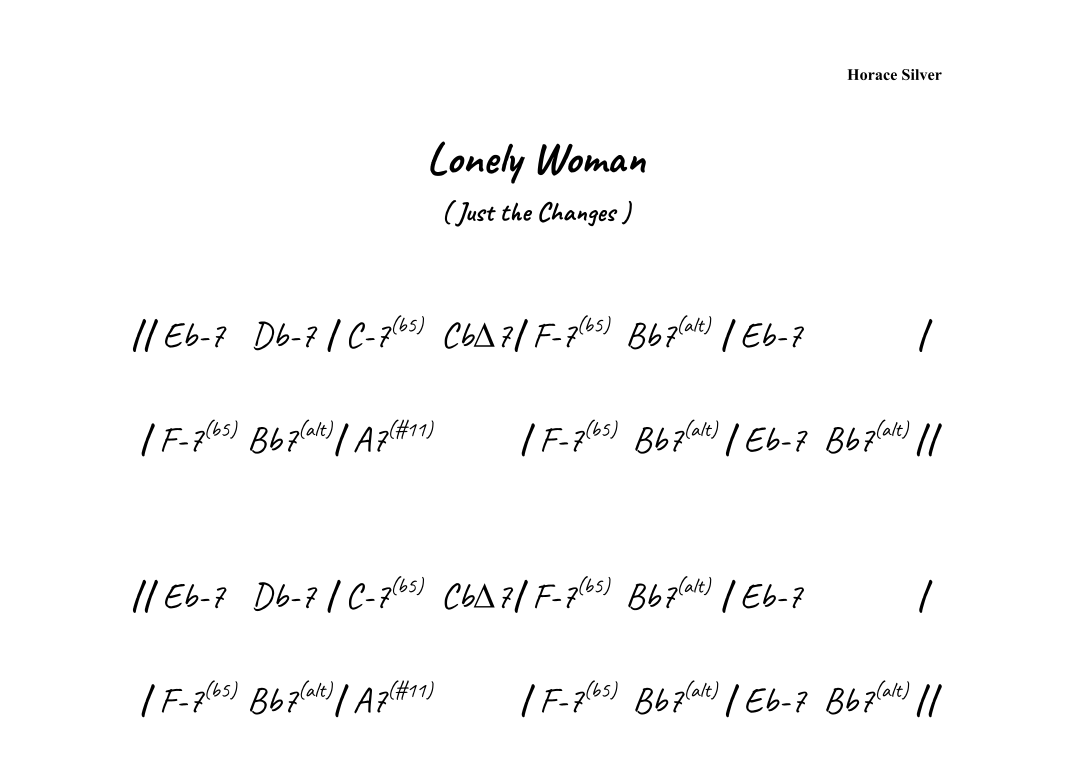 Horace Silver
Lonely Woman
( Just the Changes )
|| Eb-7 Db-7 | C-7(b5) Cb∆7 | F-7(b5) Bb7(alt) | Eb-7 |
| F-7(b5) Bb7(alt) | A7(#11) | F-7(b5) Bb7(alt) | Eb-7 Bb7(alt) ||
|| Eb-7 Db-7 | C-7(b5) Cb∆7 | F-7(b5) Bb7(alt) | Eb-7 |
| F-7(b5) Bb7(alt) | A7(#11) | F-7(b5) Bb7(alt) | Eb-7 Bb7(alt) ||